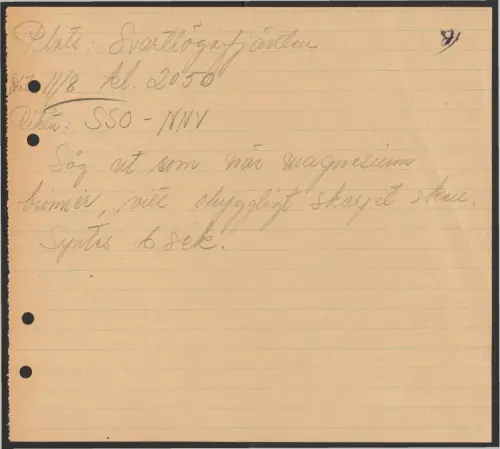 Plats: Svartlögafjärden
11/8 kl. 2050
Riktn: SSO - NNV
Såg ut som när magnesium
brinner, vitt ohyggligt skarpt sken.
Syntes 6 sek.